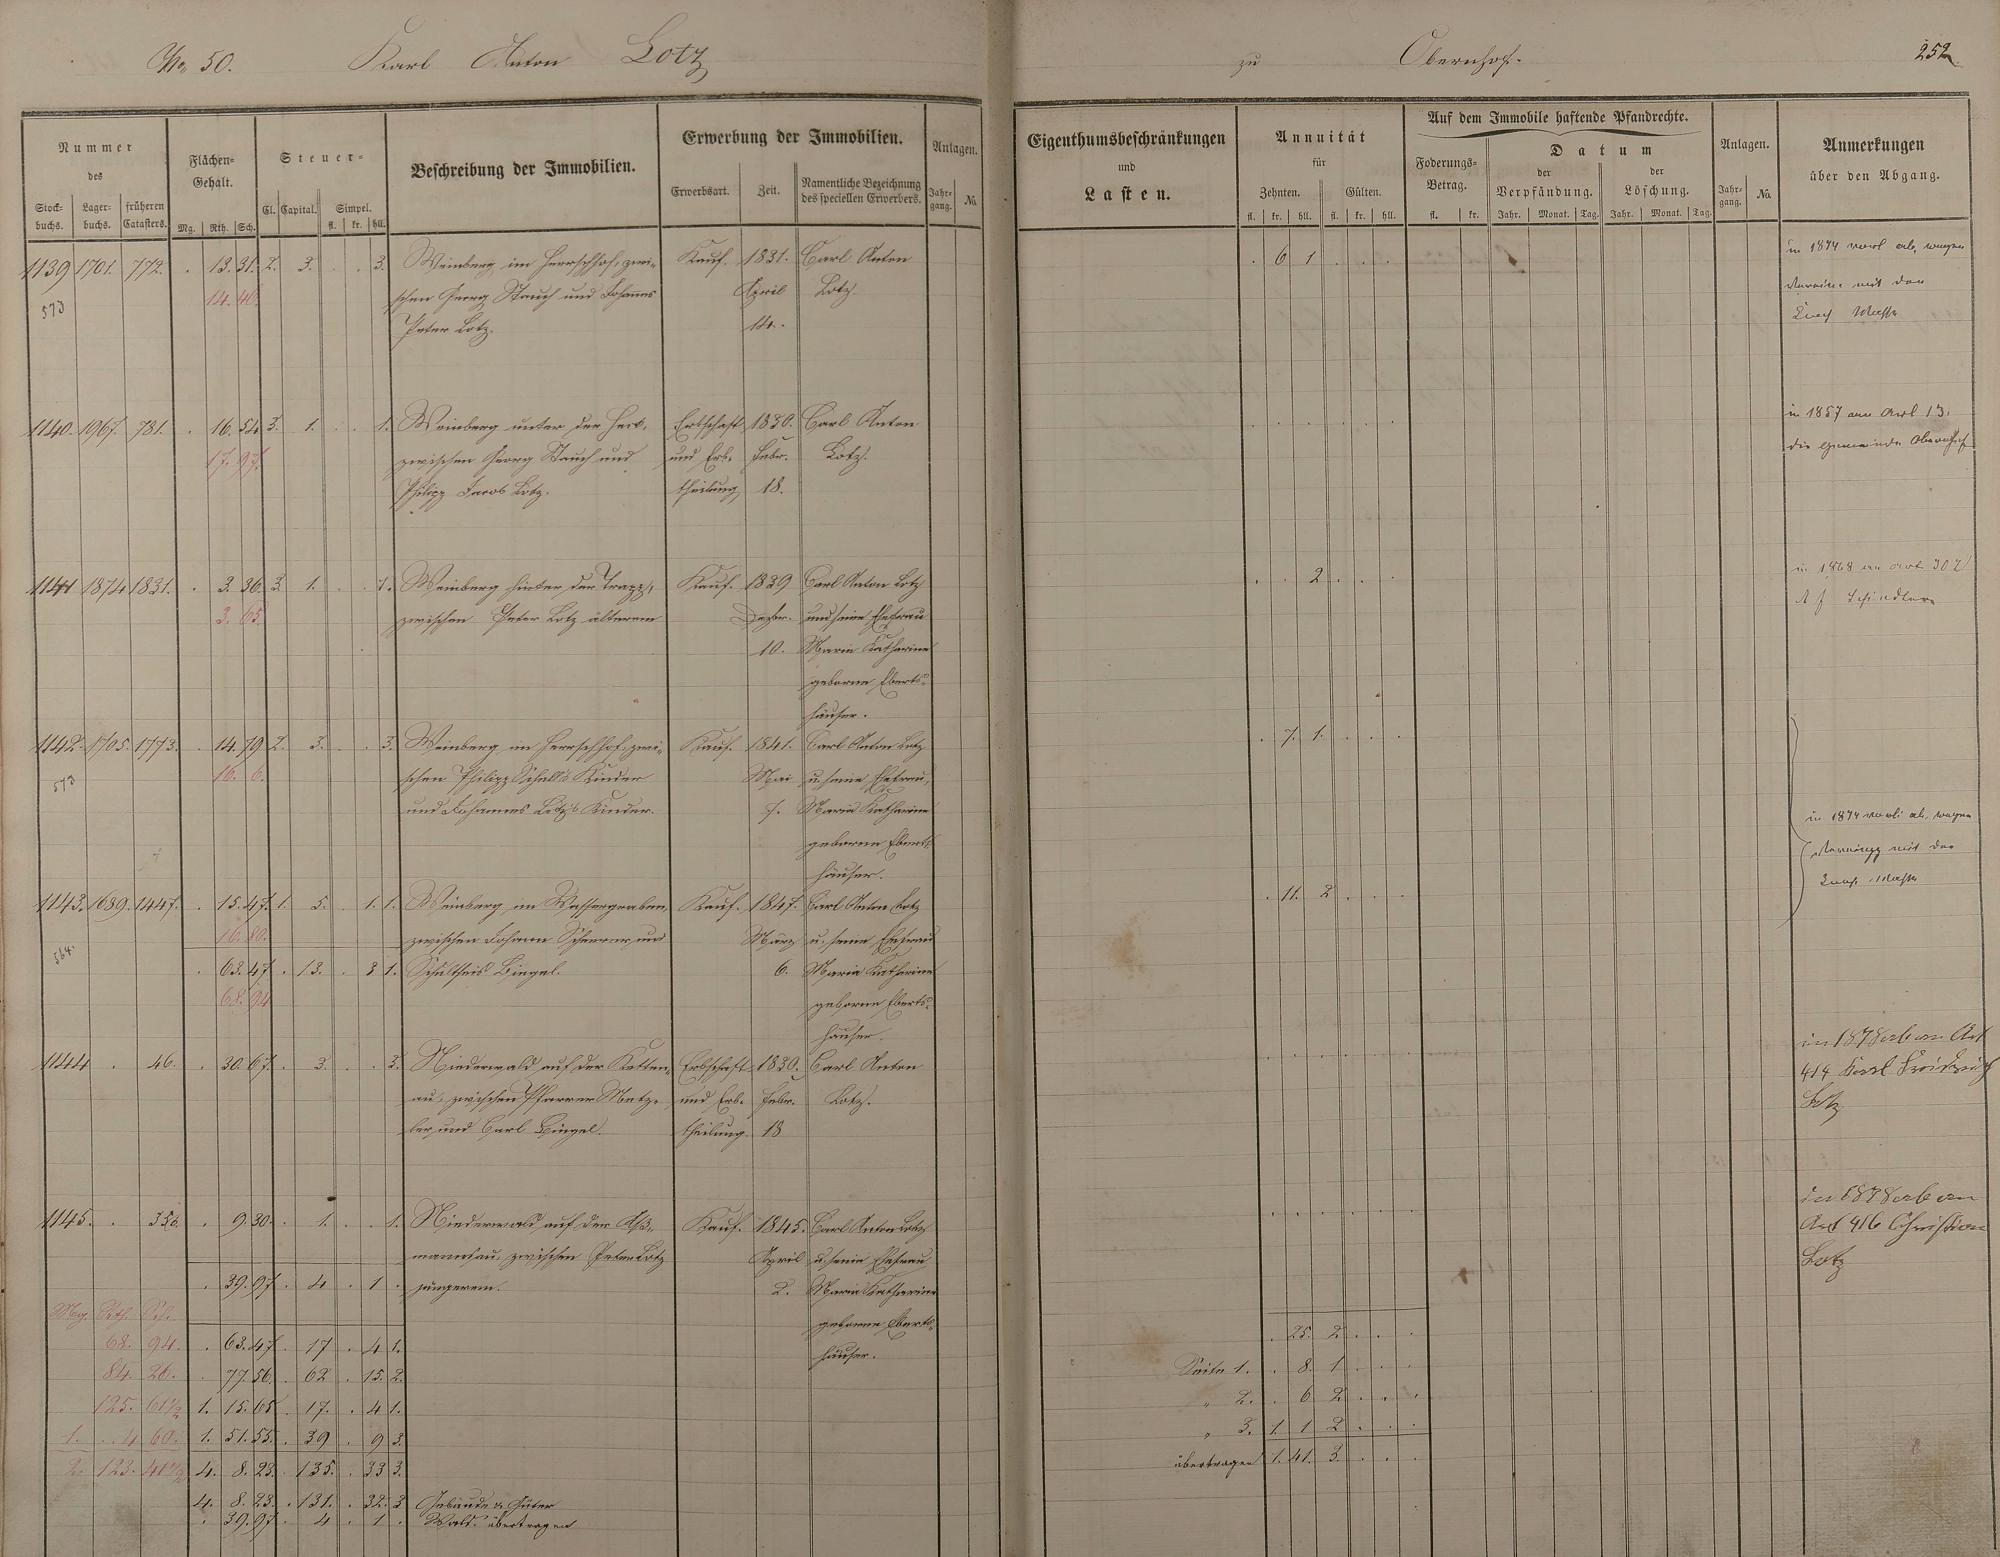 No. 50. Karl Anton Lotz zu Obernhof. 252
Nummer des
Stockbuchs. Lagerbuchs. früheren Catasters.
Flächen-Gehalt.
Mg. Rth. Sch.
Steuer-
Cl. Capital. Simpel.
fl. kr. hll.
Beschreibung der Immobilien.
Erwerbung der Immobilien.
Erwerbsart. Zeit. Namentliche Bezeichnung des speciellen Erwerbers.
Anlagen.
Jahrgang. No.
Eigenthumsbeschränkungen
und
Lasten.
Annuität
für
Zehnten. Gülten.
fl. kr. hll. fl. kr. hll.
Auf dem Immobile haftende Pfandrechte.
Foderungs-Betrag.
fl. kr.
Datum
der Verpfändung. der Löschung.
Jahr. Monat. Tag. Jahr. Monat. Tag.
Anlagen.
Jahrgang. No.
Anmerkungen
über den Abgang.
1139 1701. 772. . 13. 31. 2. 3. . . 3. Weinberg im Herrschhof, zwi- Kauf. 1831. Carl Anton . 6 1 . . .
573 14. 40. schen Georg Stauch und Johannes April Lotz.
Peter Lotz. 14.
in 1874 ab, wegen
mit der
Masse
1140. 1967. 781. . 16. 54. 3. 1. . . 1. Weinberg unter der Heck, Erbschaft 1830. Carl Anton . . . . . .
17. 97. zwischen Georg Stauch und und Erb- Febr. Lotz.
Philipp Jacob Lotz. theilung 18.
in 1857 an Artl 13.
die Gemeinde Obernhof
1141 1874 1831. . 3. 36. 3 1. . . 1. Weinberg hinter der Trapp, Kauf. 1839 Carl Anton Lotz . . 2 . . .
3. 65. zwischen Peter Lotz älterem Dezbr. und seine Ehefrau
10. Maria Katharine
geborne Eberts-
häuser.
in 1868 an Art 302
1142. 1705. 1773. . 14. 79 2. 3. . . 3. Weinberg im Herrschhof, zwi- Kauf. 1841. Carl Anton Lotz . 7. 1. . . .
573 16. 6. schen Philipp Schell's Kinder Mai u. seine Ehefrau,
und Johannes Lotz's Kinder. 7. Maria Katharine
geborne Eberts-
häuser.
in 1874 ab, wegen
mit der
Masse
1143. 1689. 1447. . 15. 47. 1. 5. . 1. 1. Weinberg im Wassergraben, Kauf. 1847. Carl Anton Lotz . 11. 2 . . .
564. 16. 80. zwischen Johann und März u. seine Ehefrau
. 63. 47 . 13. . 3 1. Schultheis Bingel. 6. Maria Katharine
68. 94 geborne Eberts-
häuser.
1144 . 46. . 30. 67. . 3. . . 3. Niederwald auf der Ketten- Erbschaft 1830. Carl Anton . . . . . .
au, zwischen Pfarrer Metz- und Erb- Febr. Lotz.
ler und Carl Bingel. theilung. 18
in 1878 ab an Art
414 Karl Friedrich
Lotz
1145. . 356. . 9. 30. . 1. . . 1. Niederwald auf der Aß- Kauf. 1845. Carl Anton Lotz . . . . . .
mannsau, zwischen Peter Lotz April u. seine Ehefrau
. 39. 97. . 4 . 1 . jüngerem. 2. Maria Katharine
geborne Eberts-
häuser.
in 1878 ab an
Art 416 Christian
Lotz
Mg. Rth. Sch.
68. 94. . 63. 47. . 17 . 4 1. . 25. 2 . . .
84. 20. . 77. 56. . 62 . 15. 2. Seite 1. . 8. 1 . . .
125. 61 1/2 1. 15. 65 . 17. . 4 1. " 2. . 6 2 . . .
1. . 4 60. 1. 51. 55. . 39 . 9 3. " 3. 1. 1 2 . . .
2. 123. 41 1/2 4. 8. 23. . 135. . 33 3. übertragen 1. 41. 3. . . .
4. 8. 23. . 131. . 32. 3 Gebäude & Güter
. 39. 97. . 4 . 1 . Wald. übertragen